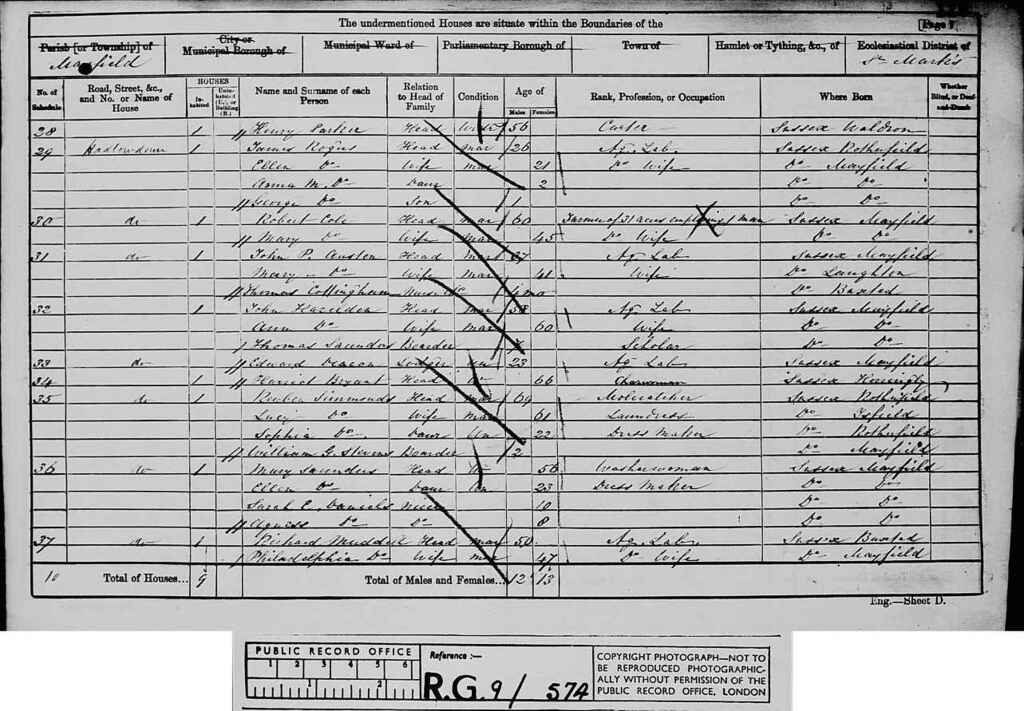 The undermentioned Houses are situate within the Boundaries of the [Page 7
Parish [or Township] of City or Municipal Borough of Municipal Ward of Parliamentary Borough of Town of Hamlet or Tything, &c., of Ecclesiastical District of
Mayfield St Mark's
No. of Schedule Road, Street, &c., and No. or Name of House HOUSES Inhabited Uninhabited (U.), or Building (B.) Name and Surname of each Person Relation to Head of Family Condition Age of Males Females Rank, Profession, or Occupation Where Born Whether Blind, or Deaf-and-Dumb
28 1 Henry Parker Head 56 Carter Sussex Waldron
29 Hadlowdown 1 James Rogers Head Mar 26 Ag. Lab. Sussex Rotherfield
Ellen Do Wife Mar 21 Do Wife Do Mayfield
Anna M. Do Daur 2 Do Do
George Do Son 1 Do Do
30 do 1 Robert Cole Head Mar 60 Farmer of 31 acres employing 1 man Sussex Mayfield
Mary Do Wife Mar 45 Do Wife Do Do
31 do 1 John P. Austen Head Mar Ag Lab Sussex Mayfield
Mary Do Wife Mar 41 Wife Do Laughton
Thomas Collingham Do Buxted
32 1 John Head Mar Ag Lab Sussex Mayfield
Ann Do Wife Mar 60 Wife Do Do
Thomas Saunders Boarder Scholar Do Do
33 do 1 Edward Deacon Lodger Un 23 Ag Lab Sussex Mayfield
34 1 Harriet Bryant Head 66 Charwoman Sussex
35 do 1 Reuben Simmonds Head Mar 69 Molecatcher Sussex Rotherfield
Lucy Do Wife Mar 61 Laundress Do Isfield
Sophia Do Daur Un 22 Dress Maker Do Rotherfield
William G. Stevens Boarder 2 Do Mayfield
36 do 1 Mary Saunders Head W 56 Washerwoman Sussex Mayfield
Ellen Do Daur Un 23 Dress Maker Do Do
Sarah E. Daniels Niece 10 Do Do
Agness Do Do 8 Do Do
37 do 1 Richard Muddle Head Mar 50 Ag. Lab. Sussex Buxted
Philadelphia Do Wife Mar 47 Do Wife Do Mayfield
10 Total of Houses... 9 Total of Males and Females... 12 13
Eng.—Sheet D.
PUBLIC RECORD OFFICE
1 2 3 4 5 6
1 2
Reference :—
R.G. 9/ 574
COPYRIGHT PHOTOGRAPH—NOT TO
BE REPRODUCED PHOTOGRAPHIC-
ALLY WITHOUT PERMISSION OF THE
PUBLIC RECORD OFFICE, LONDON